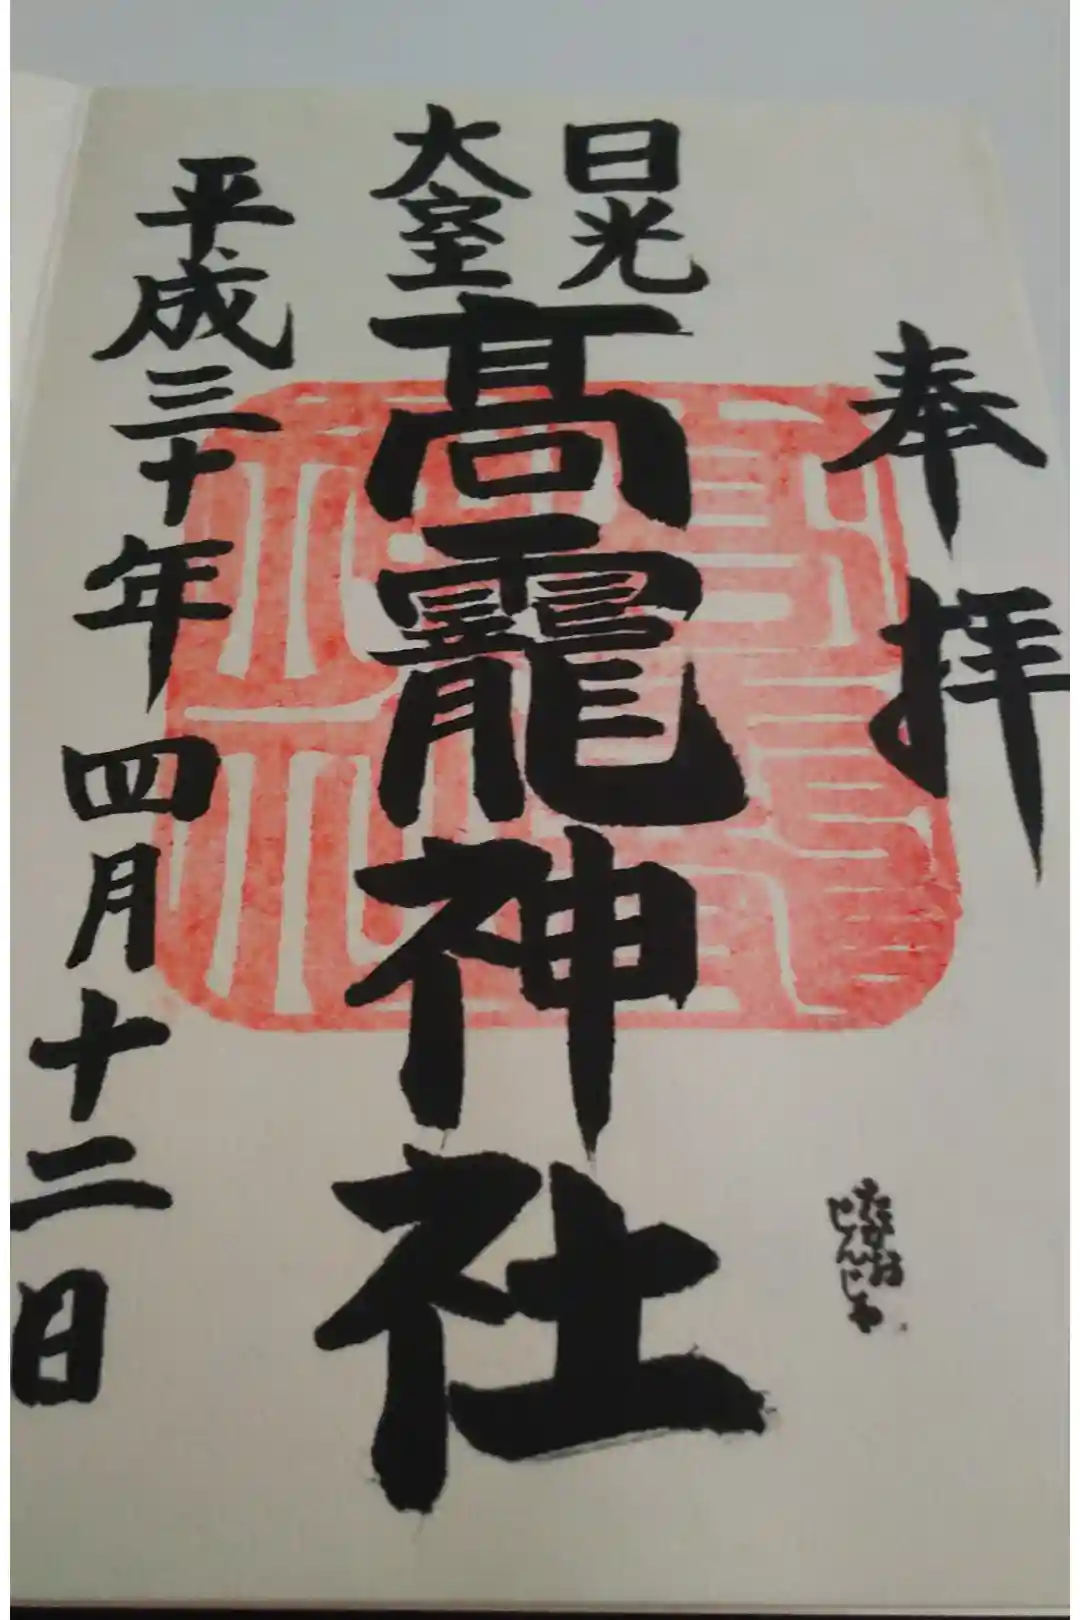 奉拝
日光
大室
髙靇神社
たかお
じんじゃ
平成三十年四月十二日